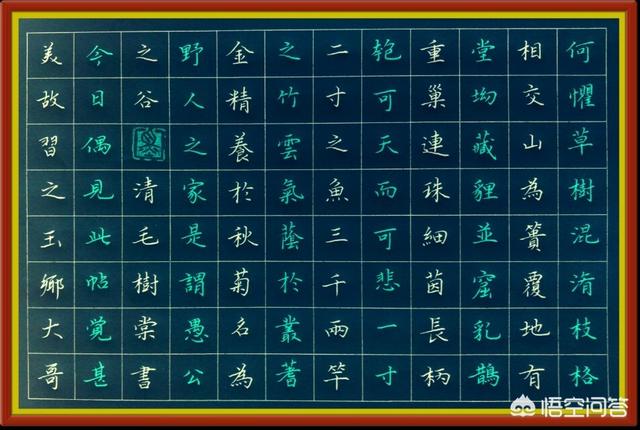 何懼草樹混淆枝格
相交山為簣覆地有
堂坳藏貍並窟乳鵲
重巢連珠細茵長柄
匏可天而可悲一寸
二寸之魚三千兩竿
之竹雲氣蔭於叢蓍
金精養於秋菊名為
野人之家是謂愚公
之谷清毛樹棠書
今日偶見此帖覺甚
美故習之玉鄉大哥
悟空问答